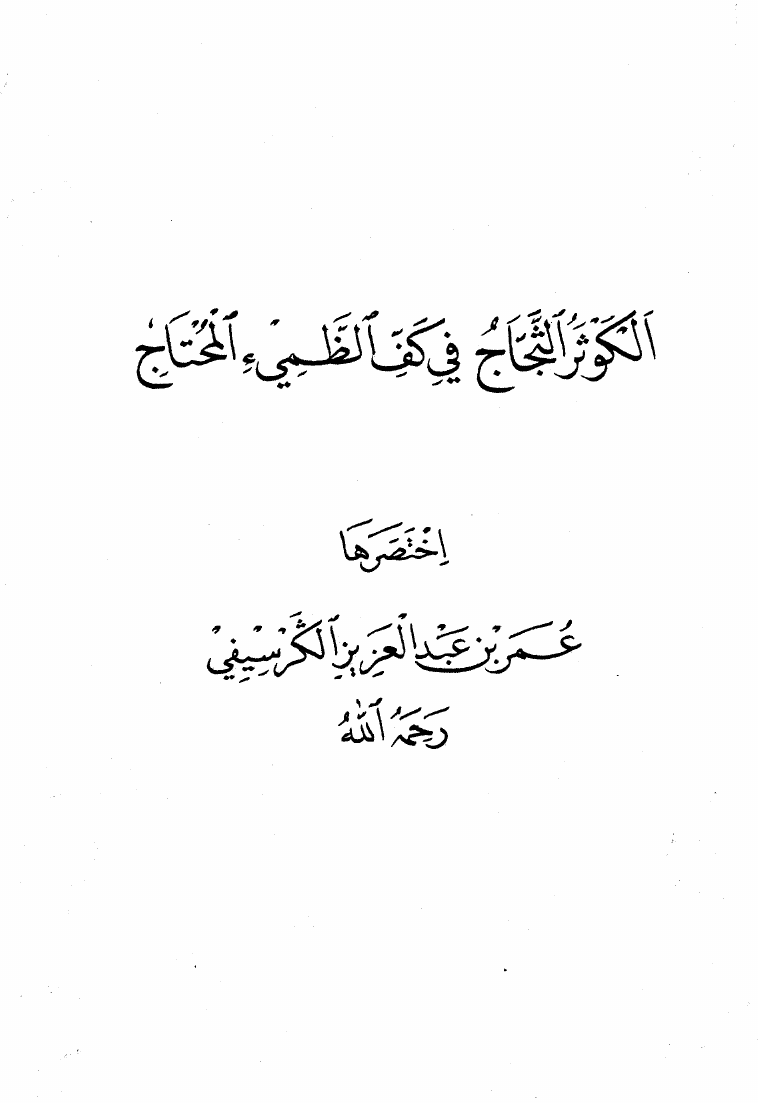 اَلْكَوْثَرُ ٱلثَّجَّاجُ فِي كَفِّ ٱلظَّمِيْءِ ٱلْمُحْتَاجِ
اِخْتَصَرَهَا
عُمَرُ بْنُ عَبْدِ الْعَزِيزِ ٱلْكَرْسِيفِيْ
رَحِمَهُ ٱللهُ